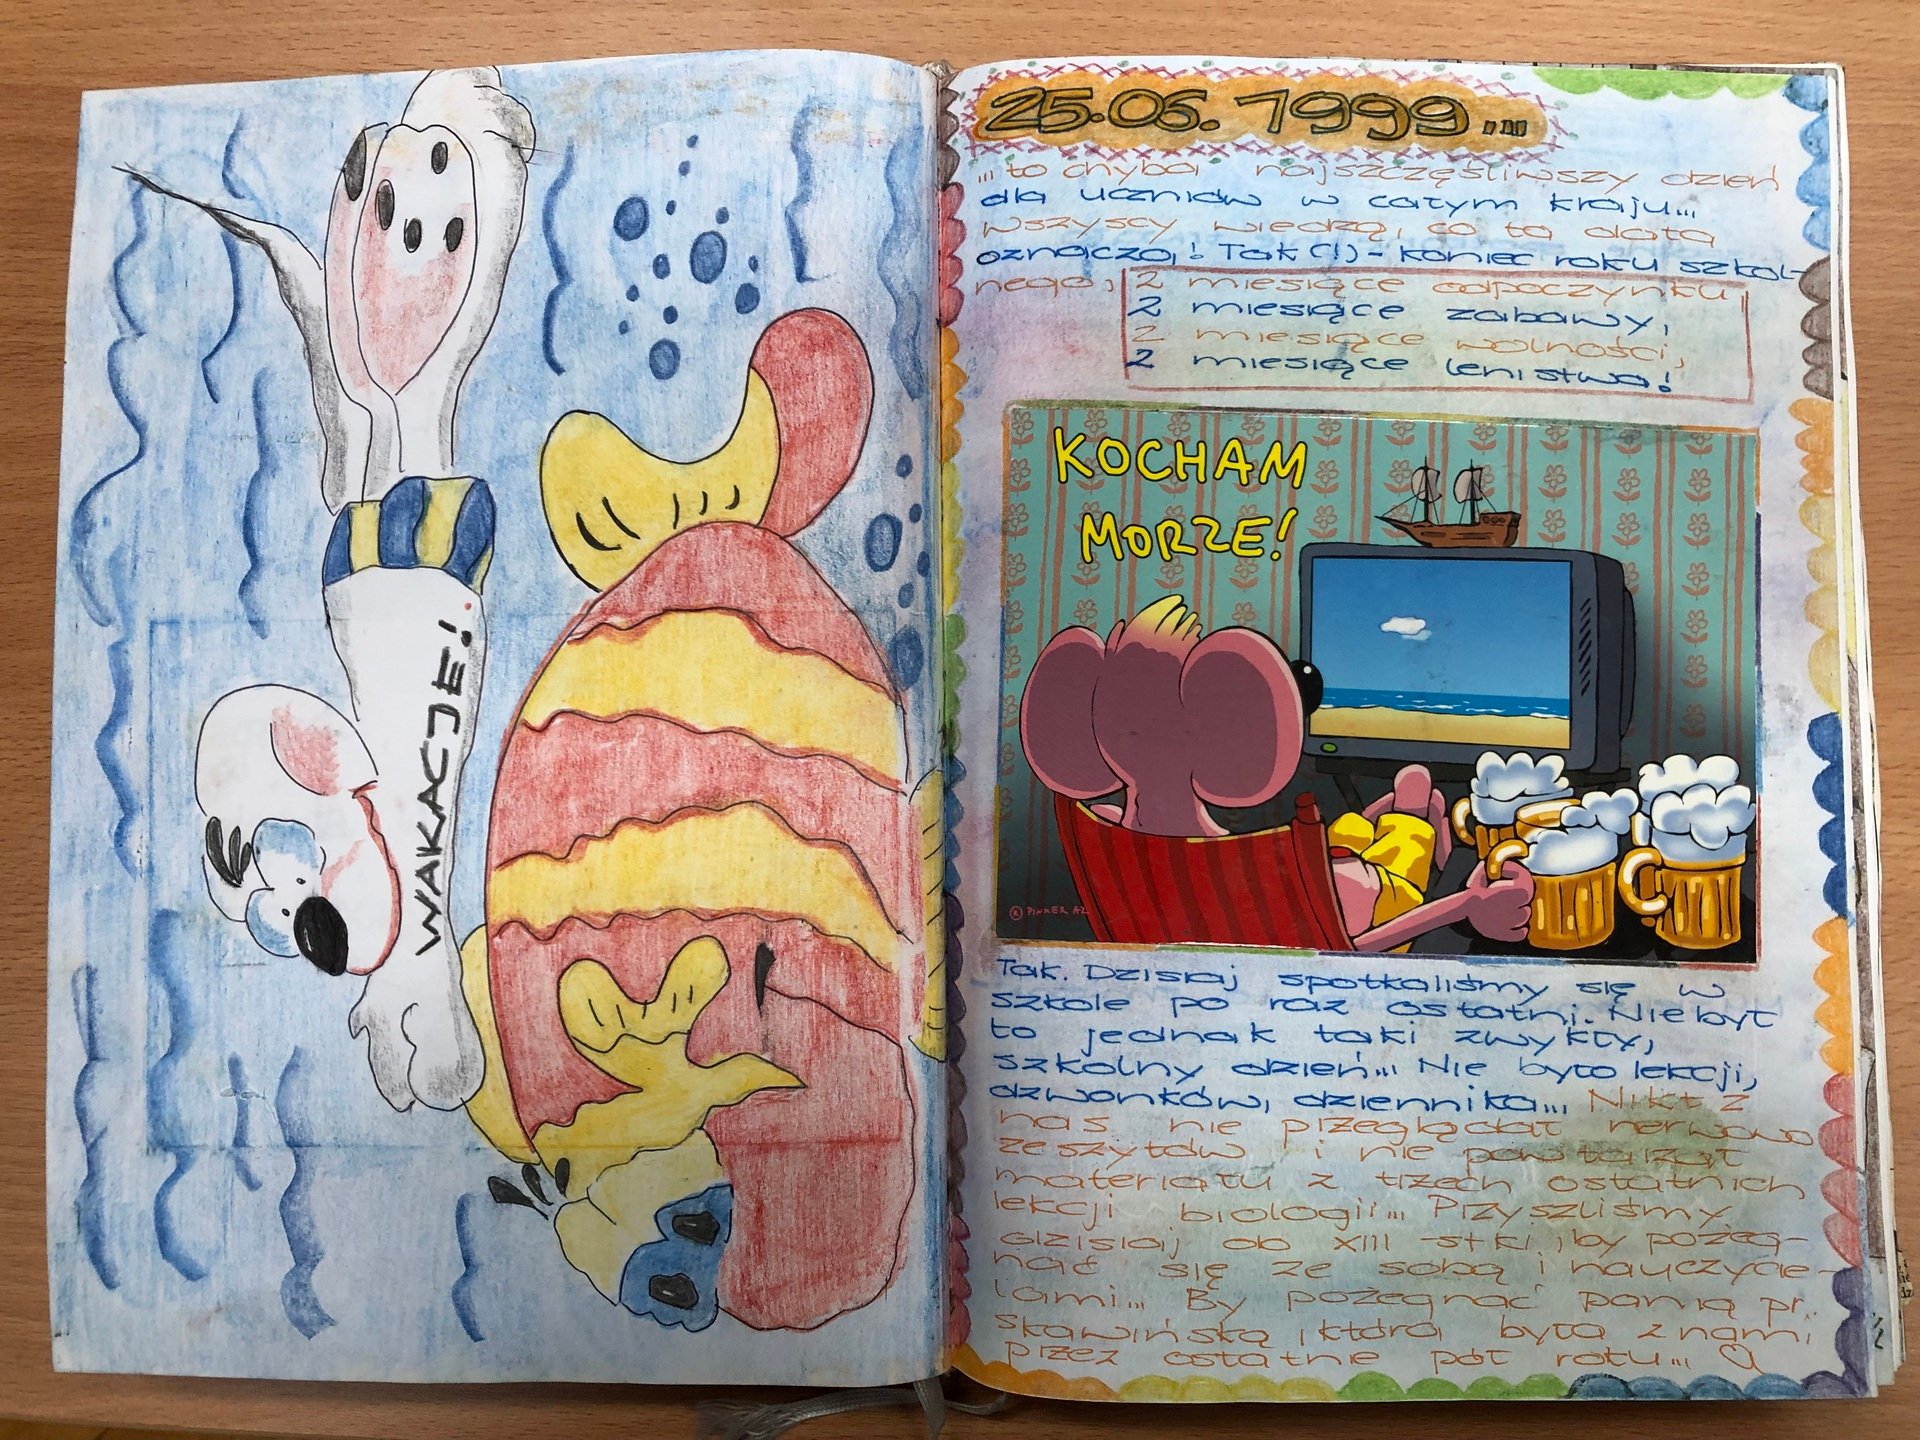 WAKACJE!
25.06.1999...
...to chyba najszczęśliwszy dzień
dla uczniów w całym kraju...
wszyscy wiedzą, co ta data
oznacza! Tak (!) - koniec roku szkol-
nego, 2 miesiące odpoczynku,
2 miesiące zabawy,
2 miesiące wolności,
2 miesiące lenistwa!
KOCHAM
MORZE!
PINKER
Tak. Dzisiaj spotkaliśmy się w
szkole po raz ostatni. Nie był
to jednak taki zwykły,
szkolny dzień... Nie było lekcji,
dzwonków, dziennika... Nikt z
nas nie przeglądał nerwowo
zeszytów i nie powtarzał
materiału z trzech ostatnich
lekcji biologii... Przyszliśmy
dzisiaj do XIII-stki, by pożeg-
nać się ze sobą i nauczycie-
lami... By pożegnać panią pr.
Skawińską, która była z nami
przez ostatnie pół roku...